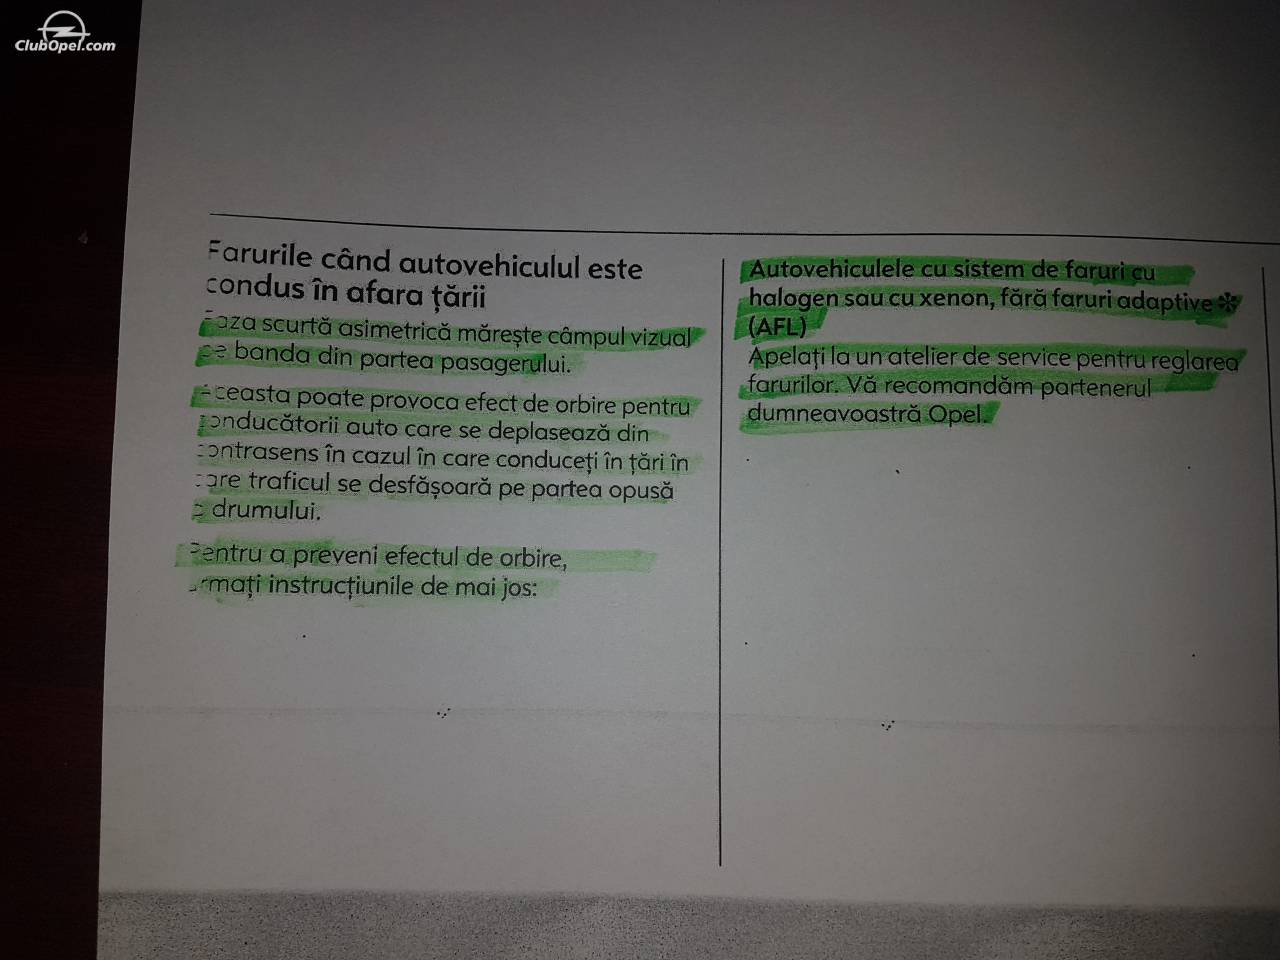 ClubOpel.com
Farurile când autovehiculul este
condus în afara țării
Faza scurtă asimetrică mărește câmpul vizual
pe banda din partea pasagerului.
Aceasta poate provoca efect de orbire pentru
conducătorii auto care se deplasează din
contrasens în cazul în care conduceți în țări în
care traficul se desfășoară pe partea opusă
a drumului.
Pentru a preveni efectul de orbire,
urmați instrucțiunile de mai jos:
Autovehiculele cu sistem de faruri cu
halogen sau cu xenon, fără faruri adaptive ✼
(AFL)
Apelați la un atelier de service pentru reglarea
farurilor. Vă recomandăm partenerul
dumneavoastră Opel.